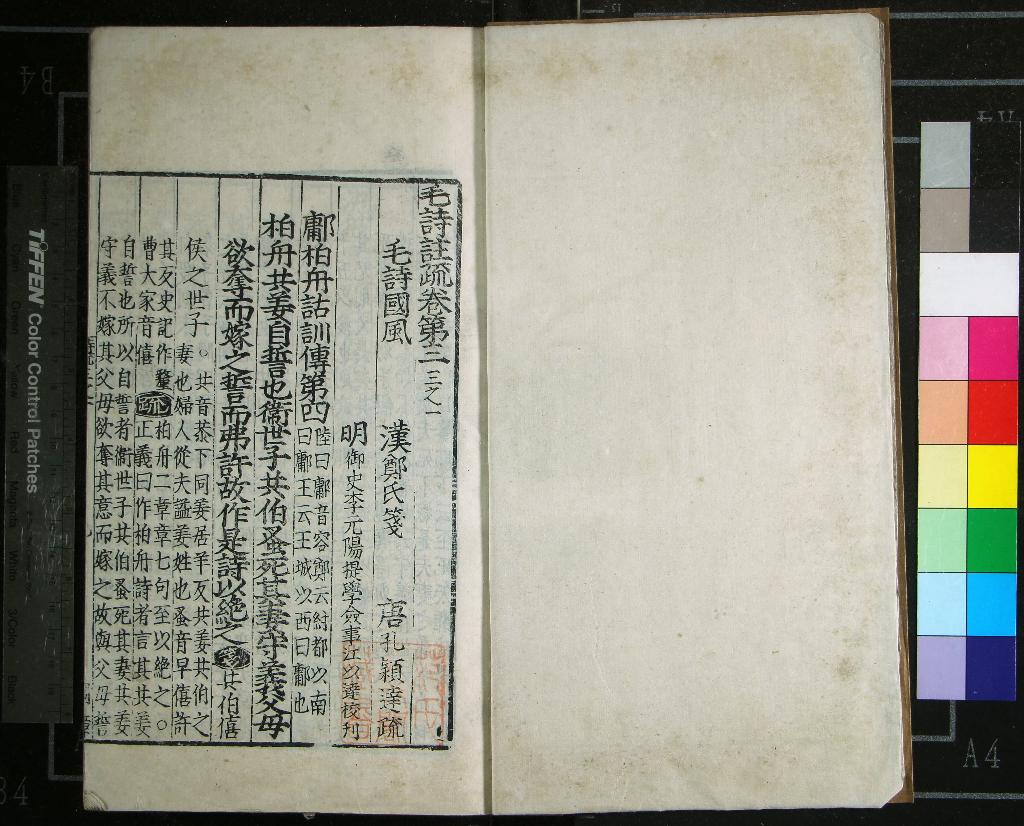 毛詩註疏卷第三 三之一
毛詩國風
漢鄭氏箋 唐孔穎達疏
明御史李元陽提學僉事江以達校刊
鄘柏舟詁訓傳第四 陸曰鄘音容鄭云紂都以南
曰鄘王云王城以西曰鄘也
柏舟共姜自誓也衞世子共伯蚤死其妻守義父母
欲奪而嫁之誓而弗許故作是詩以絶之 箋 共伯僖
侯之世子○共音恭下同姜居羊反共姜共伯之
妻也婦人從夫謚姜姓也蚤音早僖許
其反史記作釐
曹大家音僖 疏 柏舟二章章七句至以絶之○
正義曰作柏舟詩者言其共姜
自誓也所以自誓者衞世子共伯蚤死其妻共姜
守義不嫁其父母欲奪其意而嫁之故與父母誓
TIFFEN Color Control Patches
B4
A4
A4